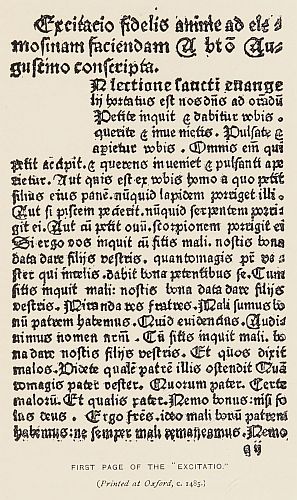 Excitacio fidelis anime ad ele⸗
mosinam faciendam A bt̄o Au⸗
gustino conscripta.
N lectione sancti euange
lij hortatus est nos dn̄s ad orādū
Petite inquit ⁊ dabitur vobis .
querite ⁊ inuenietis . Pulsate ⁊
aperietur vobis . Omnis em̄ qui
petit accipit. ⁊ querens inueniet ⁊ pulsanti ape
rietur. Aut quis est ex vobis homo a quo petit
filius eius panē. nūquid lapidem porriget illi .
Aut si piscem pecierit. nūquid serpentem porri⸗
git ei. Aut cū petit ouū. scorpionem porrigit ei
Si ergo vos inquit cū sitis mali. nostis bona
data dare filijs vestris. quantomagis pr̄ ve⸗
ster qui in celis. dabit bona petentibus se. Cum
sitis inquit mali: nostis bona data dare filijs
vestris. Miranda res fratres. Mali sumus bo
nū patrem habemus. Quid euidentius. Audi
uimus nomen nr̄m. Cū sitis inquit mali. bo
na dare nostis filijs vestris. Et quos dixit
malos. Videte qualē patrē illis ostendit Quā
tomagis pater vester. Quorum pater. Certe
malorū. Et qualis pater. Nemo bonus: nisi so
lus deus . Ergo fr̄es. ideo mali bonū patrem
habemus: ne semper mali remaneamus. Nemo
FIRST PAGE OF THE "EXCITATIO."
(Printed at Oxford, c. 1485.)